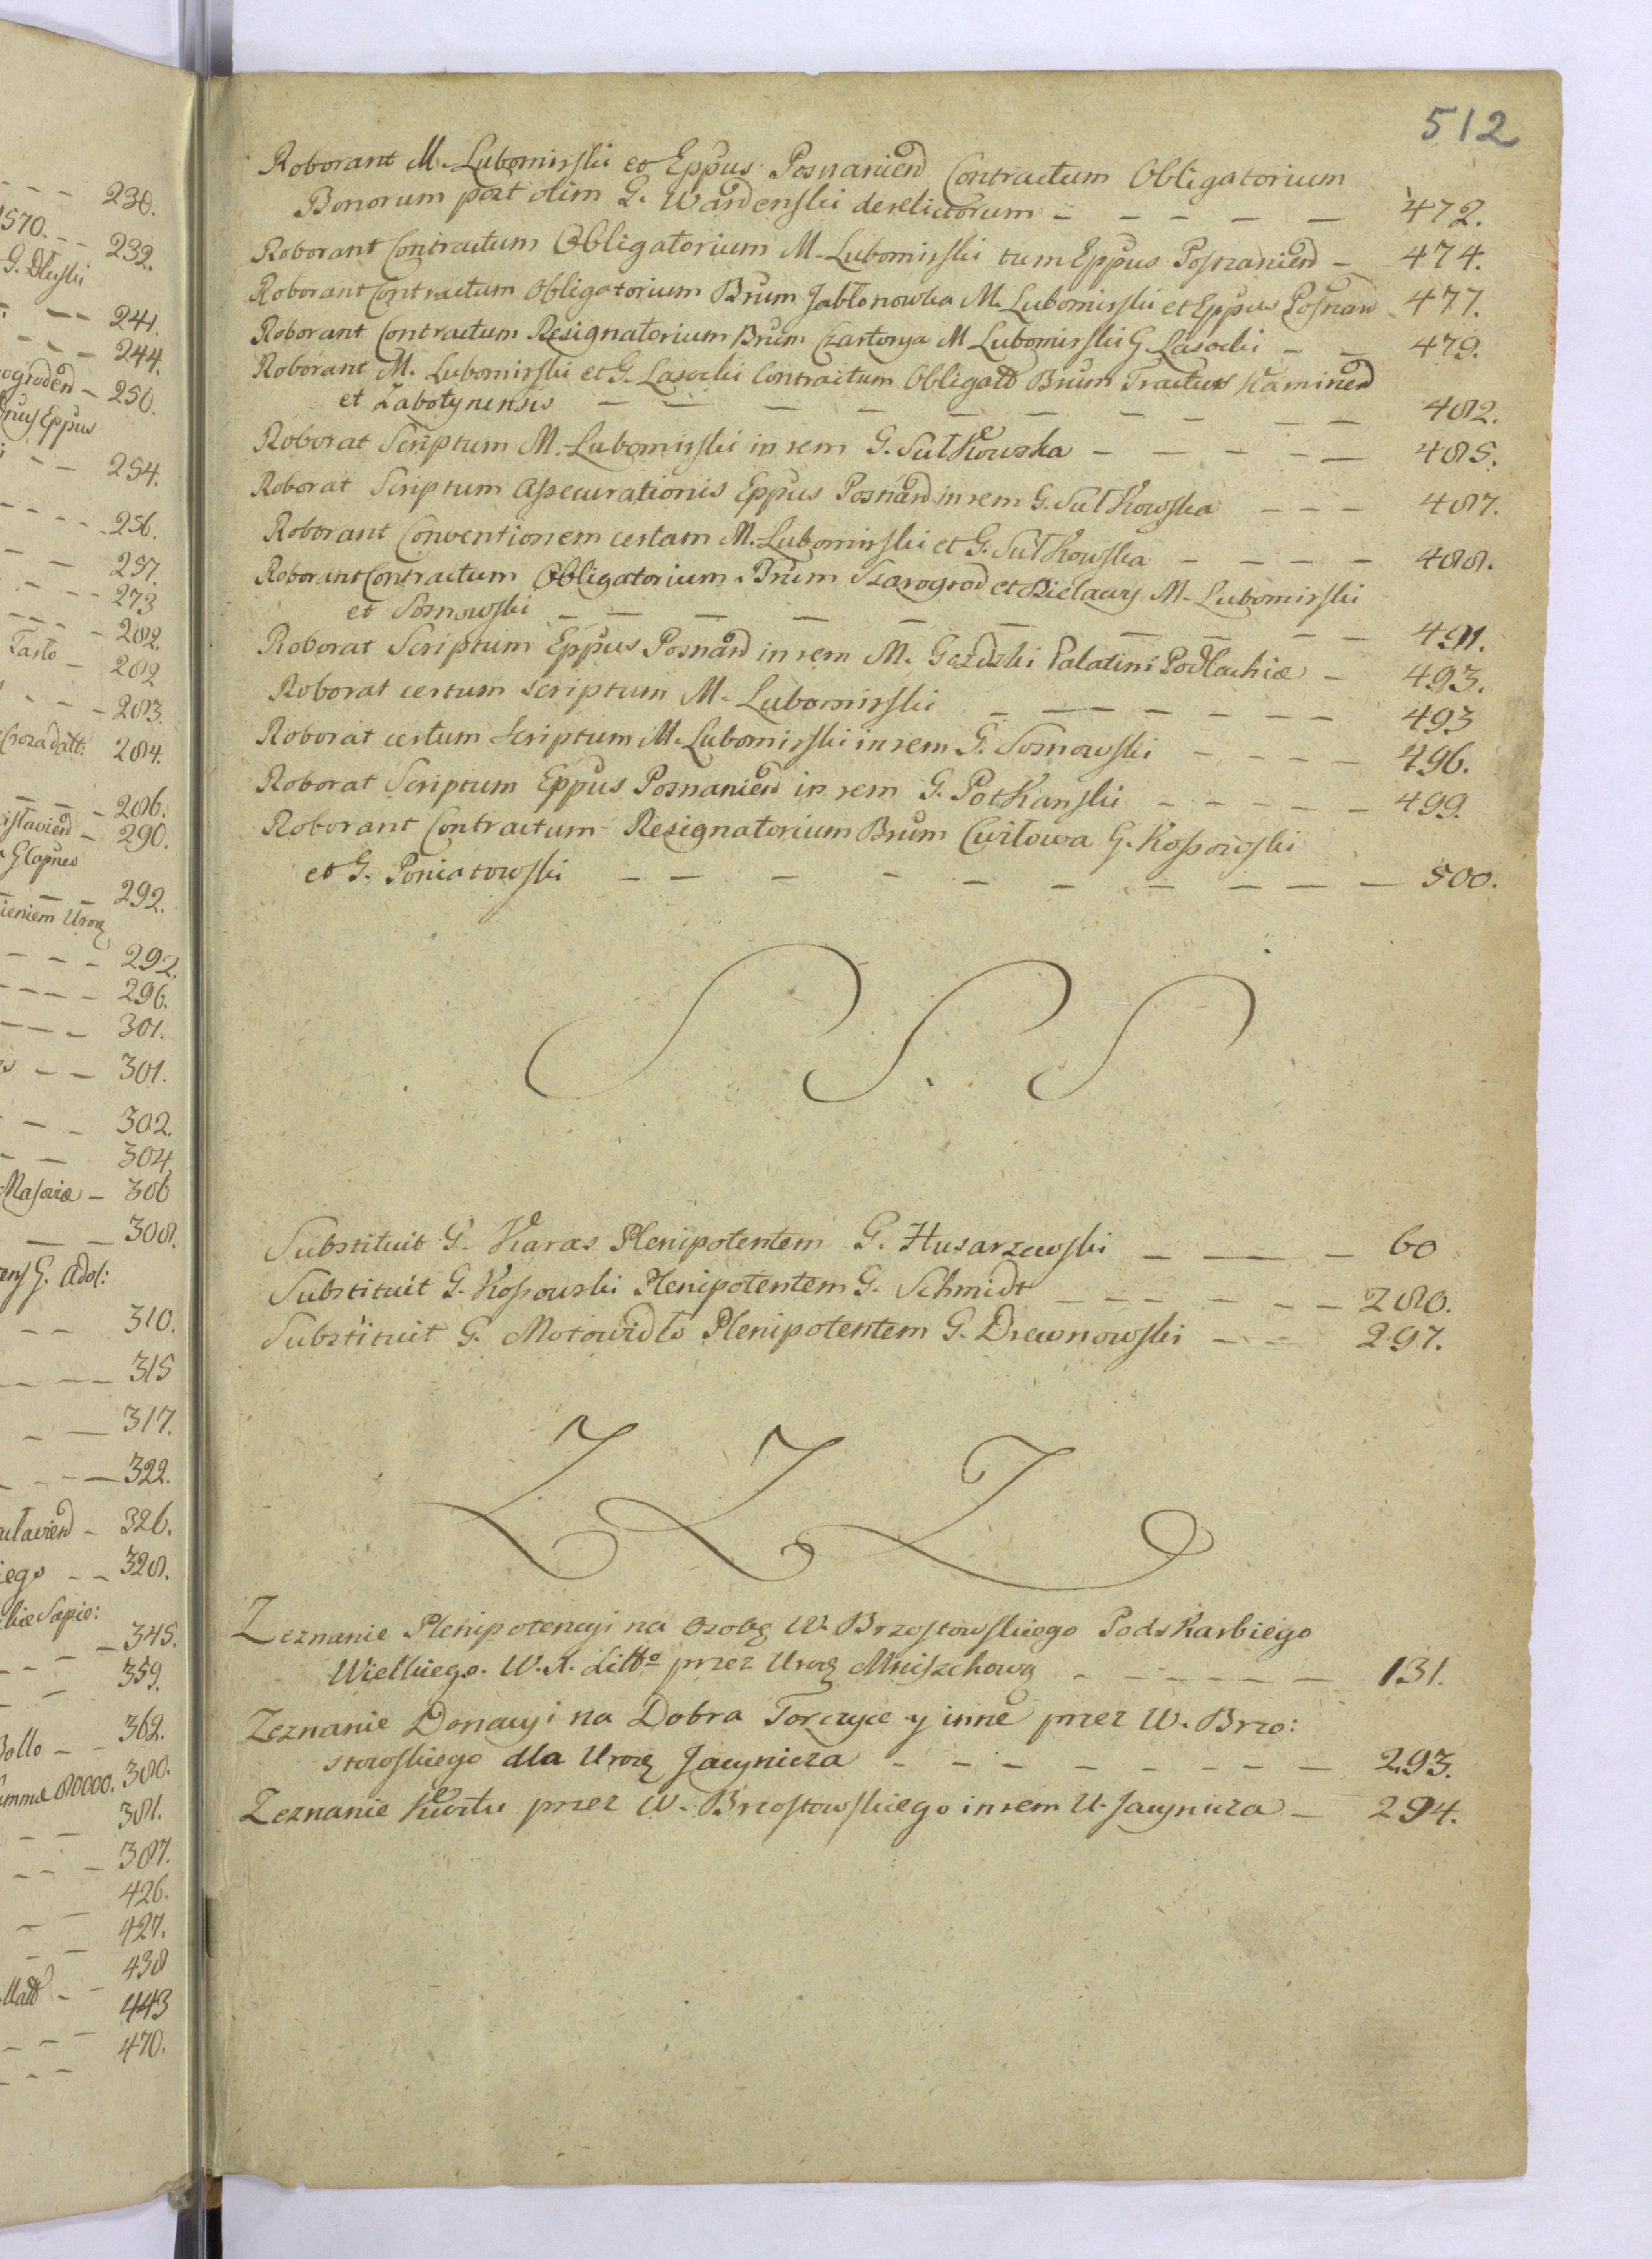 230.
1570. - - 232.
G. Dłuski
- - 241.
- - - 244.
ogroden - 250.
Eppus
- - 254.
- - - - 256.
- 257.
- - - 273
- - - - 282.
Tarło - 282
- - - 283.
284.
- - - 286.
islavien - 290.
- - 292.
ieniem Uroz
- - - 292.
- - - - 296.
- - - 301.
- - 301.
- - - 302.
- - 304.
Masoviæ - 306
- - 308.
G. Adol:
- - 310.
- - - - 315
- - 317.
- - - - 322.
utavien - 326.
iego - - 328.
Sapie:
- 345.
- - - 359.
ollo - - 362.
umma 80000. 380.
381.
- - 387.
- - - 426.
- - 427.
- - 438
- - 443
- - - 470.
- - -
512
Roborant M. Lubomirski et Eppus Posnanien Contractum Obligatorium
Bonorum post olim G. Wardenski derelictorum - - - - - 472.
Roborant Contractum Obligatorium M. Lubomirski tum Eppus Posnanien - 474.
Roborant Contractum Obligatorium Brum Jabłonowka M. Lubomirski et Eppus Posnan 477.
Roborant Contractum Resignatorium Brum Czartorya M Lubomirski G. Lasocki - - 479.
Roborant M. Lubomirski et G. Lasocki Contractum Obligatt Brum Tractus Kaminen
et Zabotynensis - - - - - - - - - - 482.
Roborat Scriptum M. Lubomirski in rem G. Sułkowska - - - - - 485.
Roborat Scriptum Assecurationis Eppus Posnan in rem G. Sułkowska - - - 487.
Roborant Conventionem certam M. Lubomirski et G. Sułkowska - - - - 488.
Roborant Contractum Obligatorium Brum Szarogrod et Bielawy M. Lubomirski
et Sosnowski - - - - - - - - - - 491.
Roborat Scriptum Eppus Posnan in rem M. Gozdzki Palatini Podlachiæ - 493.
Roborat certum scriptum M. Lubomirski - - - - - - - 493
Roborat certum Scriptum M. Lubomirski in rem G. Sosnowski - - - - 496.
Roborat Scriptum Eppus Posnanien in rem G. Potkanski - - - - - 499.
Roborant Contractum Resignatorium Brum Cwiłowa G. Kossowski
et G. Poniatowski - - - - - - - - - - 500.
S. S. S
Substituit G. Karas Plenipotentem G. Husarzewski - - - 60
Substituit G. Kossowski Plenipotentem G. Schmidt - - - - - - 280.
Substituit G. Motowidło Plenipotentem G. Drewnowski - - 297.
Z Z Z
Zeznanie Plenipotencyi na Osobę W. Brzostowskiego Podskarbiego
Wielkiego. W. X. Litto przez Uroz Mniszchową - - - - - - 131.
Zeznanie Donacyi na Dobra Torczyce y inne przez W. Brzo:
stowskiego dla Uroz Jacynicza - - - - - - - - 293.
Zeznanie Kwitu przez W. Brzostowskiego in rem U. Jacynicza - 294.